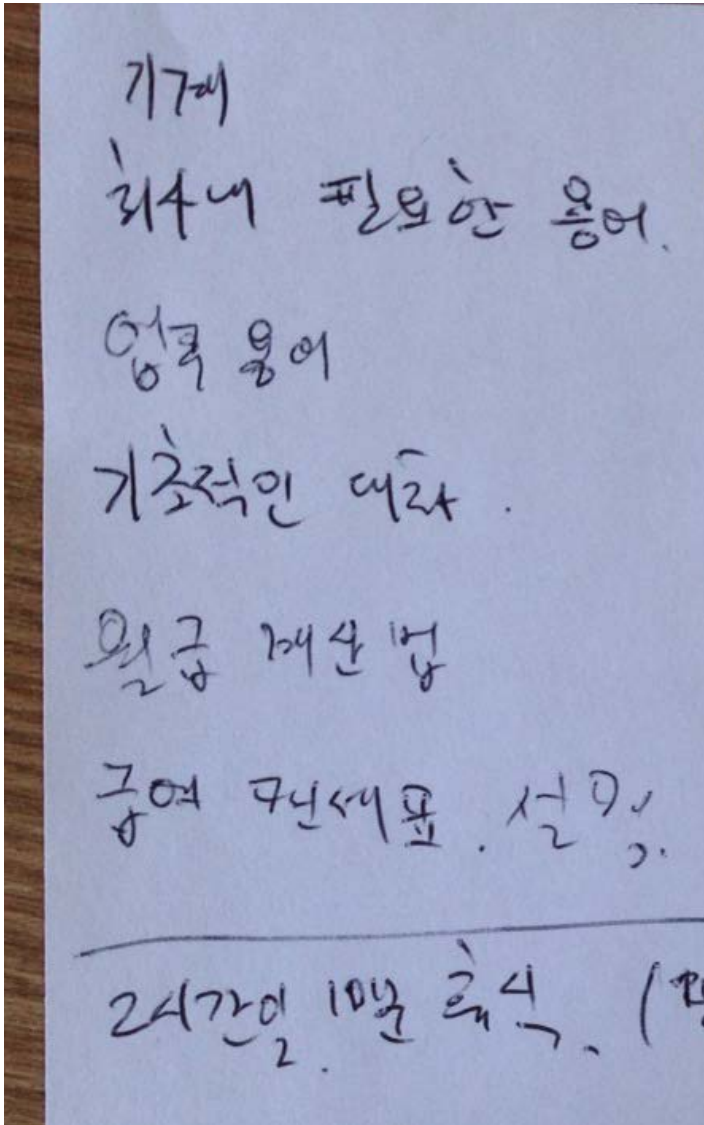 기계
회사내 필요한 용어.
업무 용어
기초적인 대화.
월급 계산법
급여 명세표. 설명.
2시간일. 10분 휴식. (